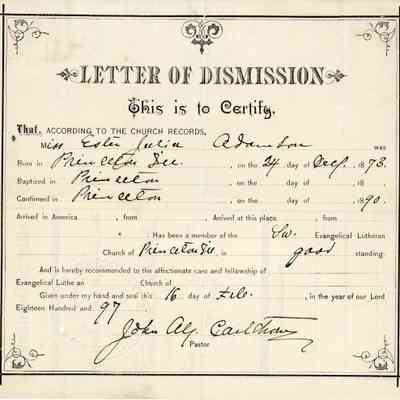 LETTER OF DISMISSION
This is to Certify,
That, ACCORDING TO THE CHURCH RECORDS,
Miss Ester Julia Adamson was
Born in Princeton Ill. , on the 24 day of Sept. 1873.
Baptized in Princeton , on the day of 18 .
Confirmed in Princeton , on the day of 1890.
Arrived in America , from Arrived at this place , from
" . Has been a member of the Sw. Evangelical Lutheran
Church of Princeton Ill, in good standing.
And is hereby recommended to the affectionate care and fellowship of
Evangelical Lutheran Church of
Given under my hand and seal this 16 day of Feb. , in the year of our Lord
Eighteen Hundred and 97
John Alf.
Pastor